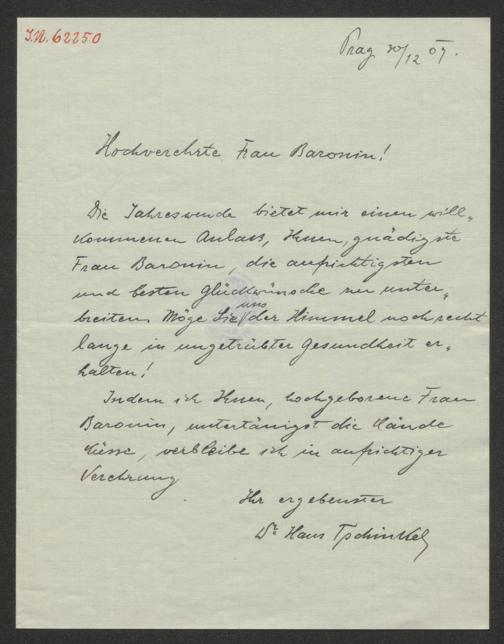 I.N. 62250
Prag 30/12 09.
Hochverehrte Frau Baronin!
Die Jahreswende bietet mir einen will-
kommenen Anlass, Ihnen, gnädigste
Frau Baronin, die aufrichtigsten
und besten Glückwünsche zu unter-
breiten. Möge Sie uns der Himmel noch recht
lange in ungetrübter Gesundheit er-
halten!
Indem ich Ihnen, hochgeborene Frau
Baronin, untertänigst die Hände
küsse, verbleibe ich in aufrichtiger
Verehrung
Ihr ergebenster
Dr. Hans Tschinkel